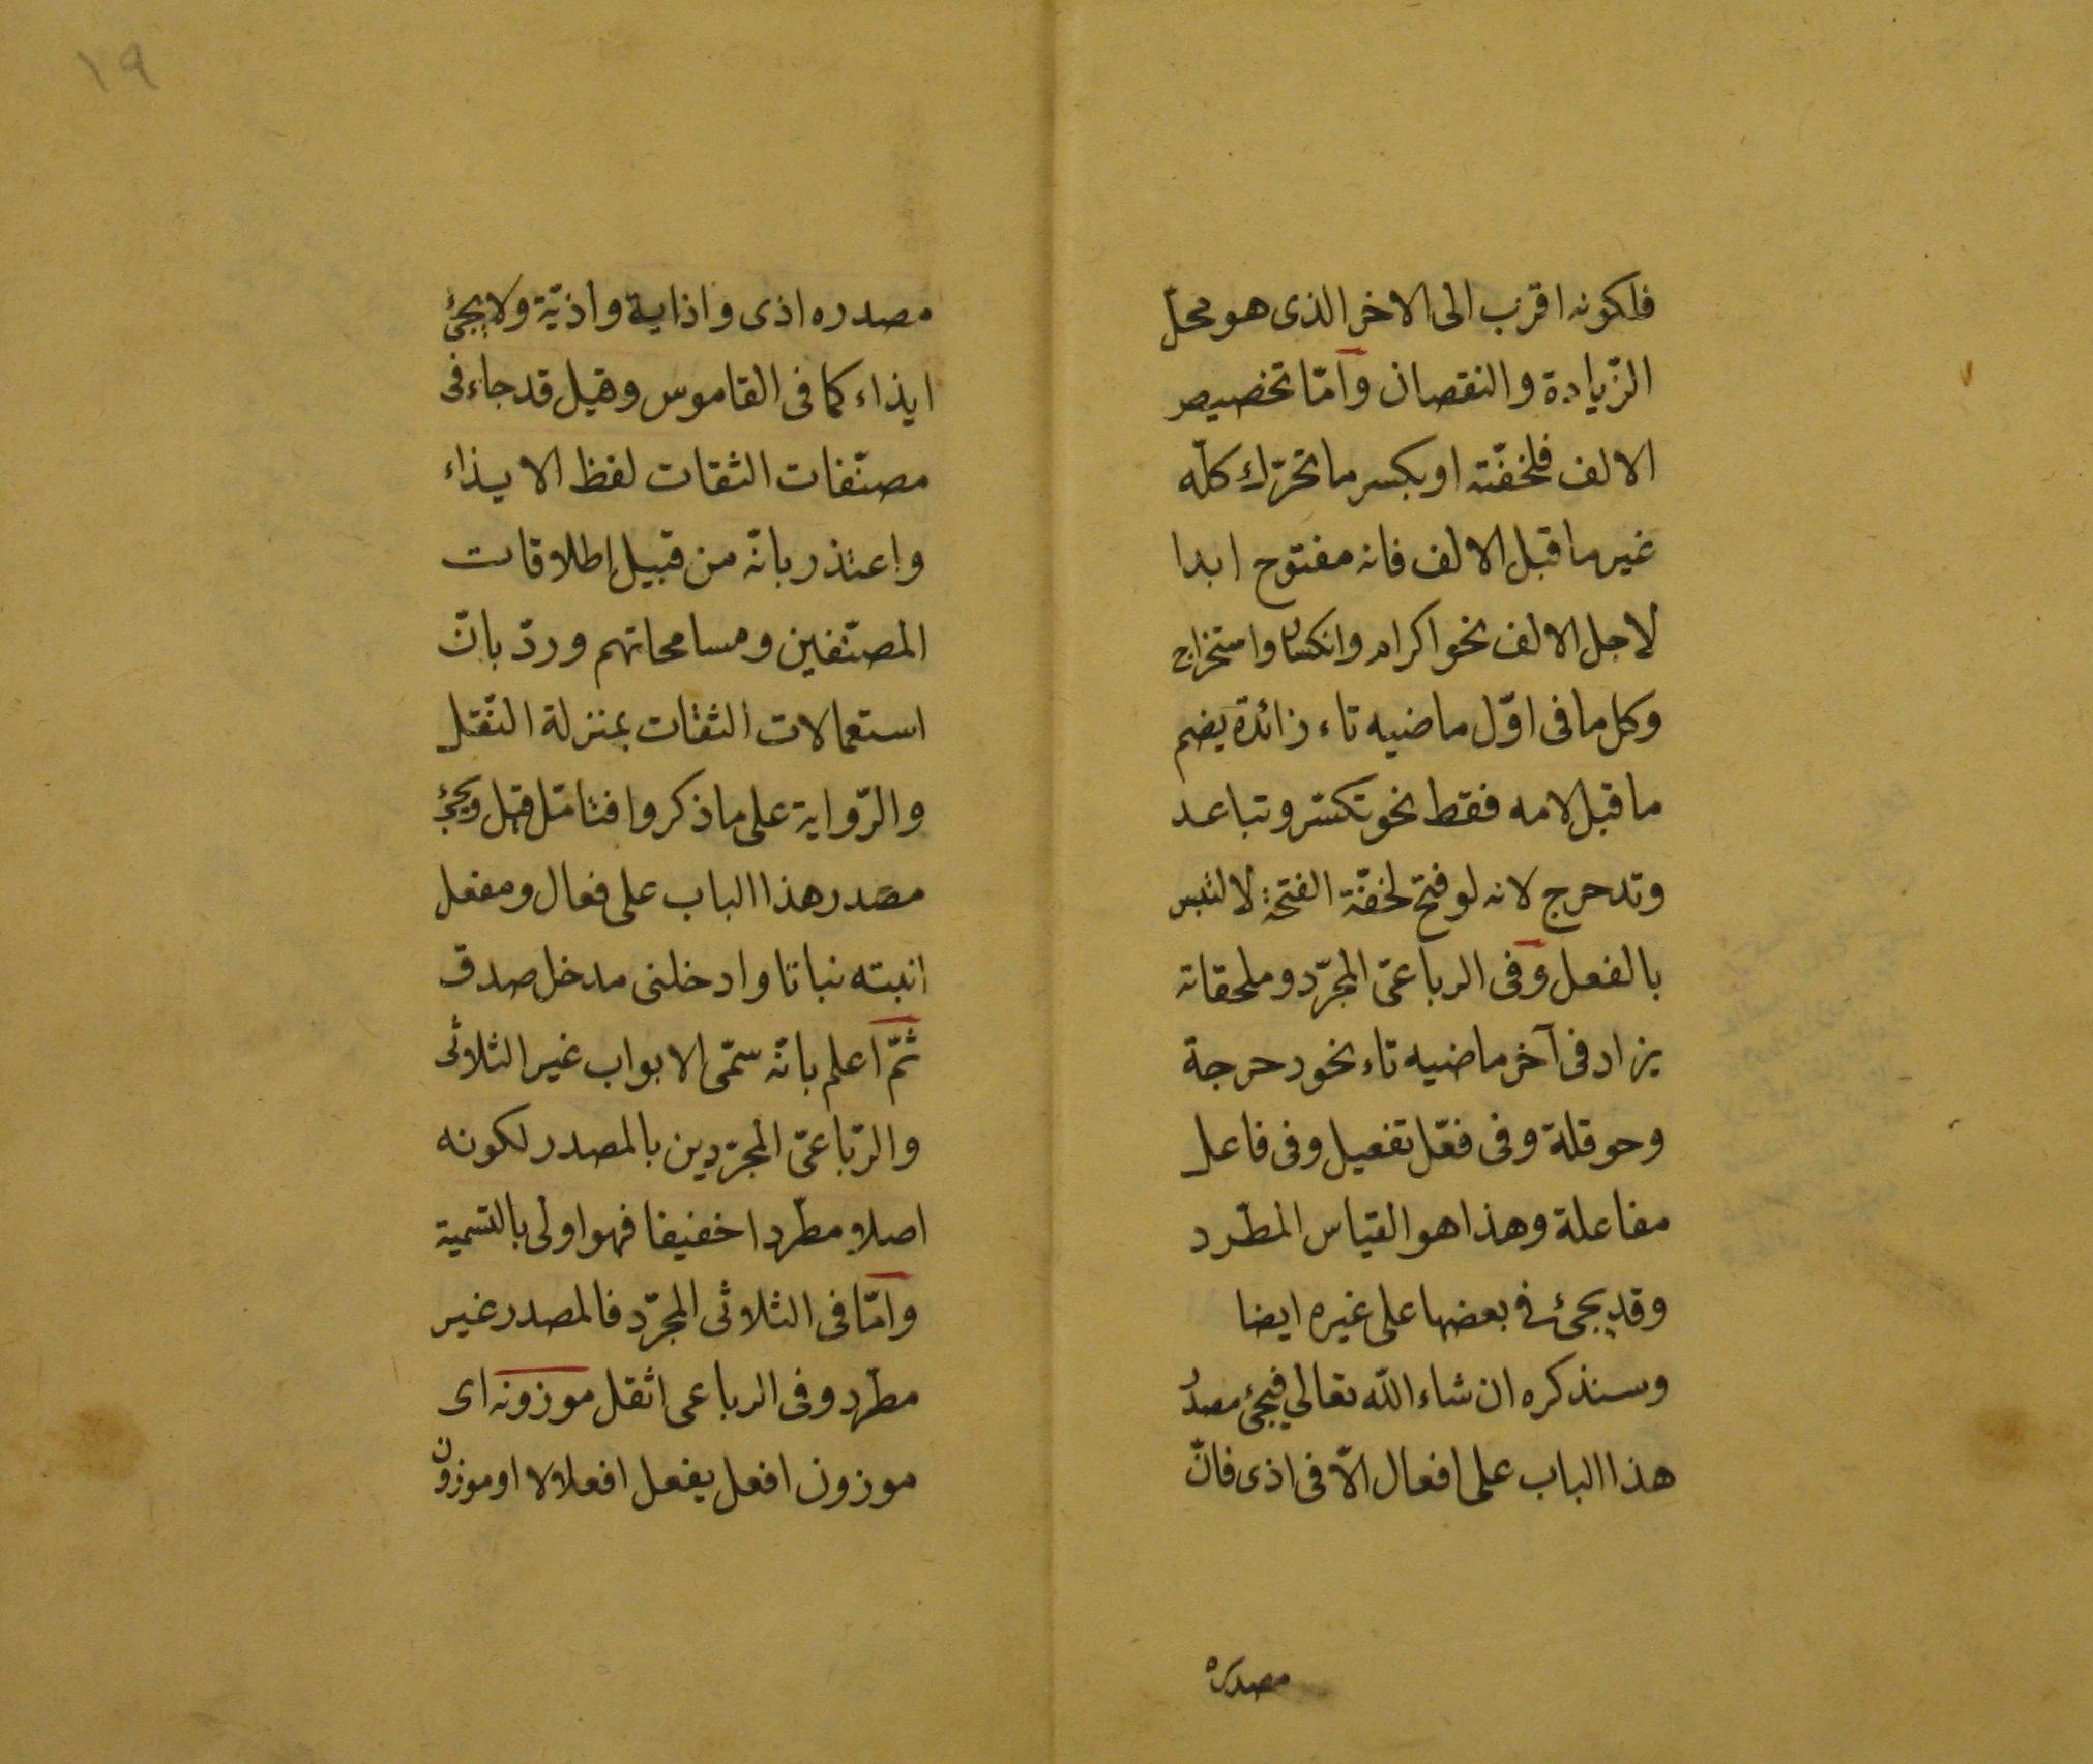 فلكونه اقرب الى الاخر الذى هو محلّ
الزّيادة والنقصان وامّا تخصيص
الالف فلخفّته او بكسر ما تحرّك كلّه
غير ما قبل الالف فانه مفتوح ابدا
لاجل الالف نحو اكرام وانكسار واستخراج
وكل ما فى اوّل ماضيه تاء زائدة يضم
ما قبل لامه فقط نحو تكسّر وتباعد
وتدحرج لانه لو فتح لخفّة الفتحة لالتبس
بالفعل وفى الرباعىّ المجرّد وملحقاته
يزاد فى آخر ماضيه تاء نحو دحرجة
وحوقلة وفى فعّل تفعيل وفى فاعل
مفاعلة وهذا هو القياس المطّرد
وقد يجئ فى بعضها على غيره ايضا
وسنذكره ان شاء اللّه تعالي فيجئ مصدر
هذا الباب على افعال الاّ فى اذى فانّ
مصدره
١٩
مصدره اذى واذاية واذيّة ولا يجئ
ايذاء كما فى القاموس وقيل قد جاء فى
مصنّفات الثقات لفظ الايذاء
واعتذر بانّه من قبيل إطلاقات
المصنّفين ومسامحاتهم وردّ بانّ
استعمالات الثقات بمنزلة النّقل
والرّواية على ما ذكروا فتامّل قيل ويجئ
مصدر هذا الباب على فعال ومفعل
انبته نباتا وادخلنى مدخل صدق
ثمّ اعلم بانّه سمّى الابواب غير الثلاثى
والرّباعىّ المجرّدين بالمصدر لكونه
اصلا مطّردا خفيفا فهو اولى بالتسمية
وامّا فى الثلاثى المجرّد فالمصدر غير
مطّرد وفى الرباعى اثقل موزونه اى
موزون افعل يفعل افعلالا او موزون